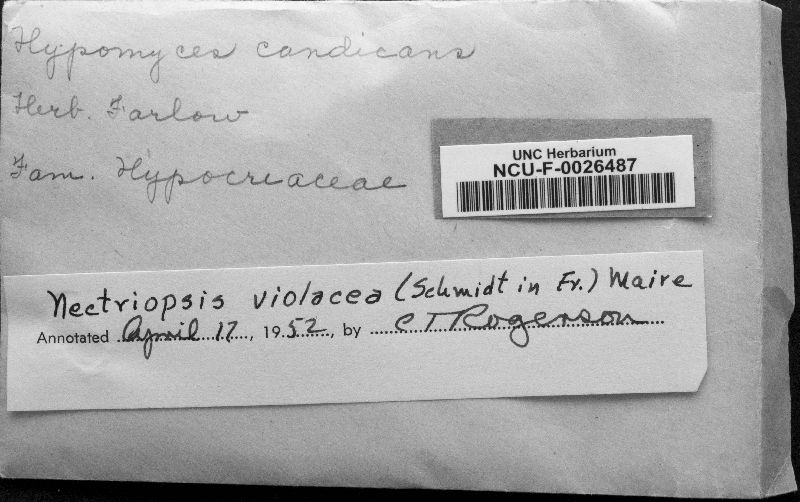 Hypomyces candicans
Herb. Farlow
Fam. Hypocreaceae
UNC Herbarium
NCU-F-0026487
Nectriopsis violacea (Schmidt in Fr.) Maire
Annotated April 17, 1952, by C T Rogerson